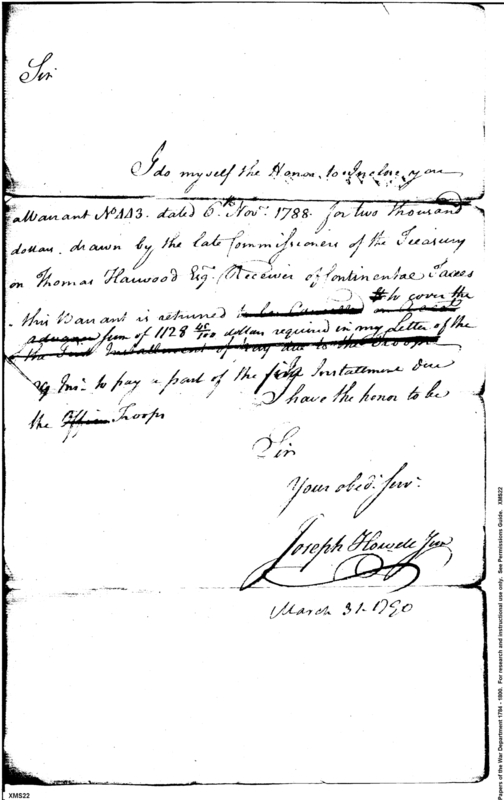 Sir
I do myself the Honor to Inclose you
a Warrant No 443. dated 6th Novr 1788. for two thousand
dollars. drawn by the late Commissioners of the Treasury
on Thomas Harwood Esqr Receiver of Continental Taxes
this Warrant is returned to be to cover the
advance sum of 1128 45/100 dollars required in my Letter of the
the First Installment of Pay due to the Troops
29 Inst to pay a part of the first Installment due
the Officers Troops
I have the honor to be
Sir
Your obedt Servt
Joseph Howell Junr
March 31-1790
XMS22
Papers of the War Department 1784 - 1800. For research and instructional use only. See Permissions Guide. XMS22